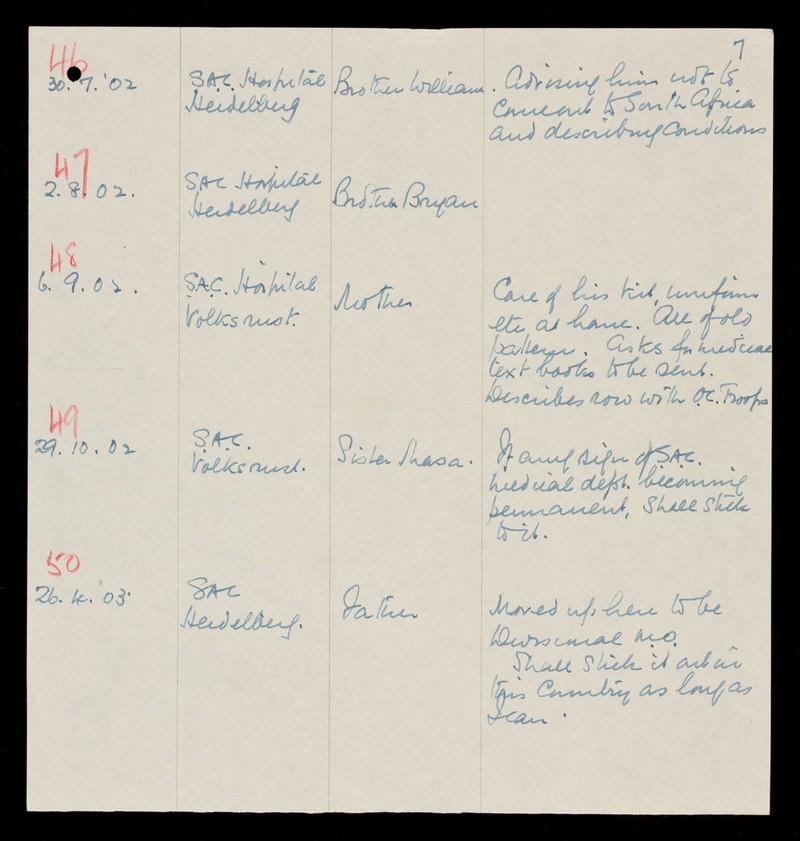 7
46
30.7.'02 S.A.C. Hospital Brother William. Advising him not to
Heidelberg come out to South Africa
and describing conditions
47
2.8.02. SAC Hospital Brother Bryan
Heidelberg
48
6.9.02. S.A.C. Hospital Mother Care of his kit, uniform
Volksrust. etc at home. All of old
pattern. Asks for medical
text books to be sent.
Describes row with O.C. Troops
49
29.10.02 S.A.C. Sister If any sign of SAC.
Volksrust. medical dept. becoming
permanent, shall stick
to it.
50
26.4.'03. SAC Father Moved up here to be
Heidelberg. Divisional M.O.
Shall stick it out in
this Country as long as
I can.